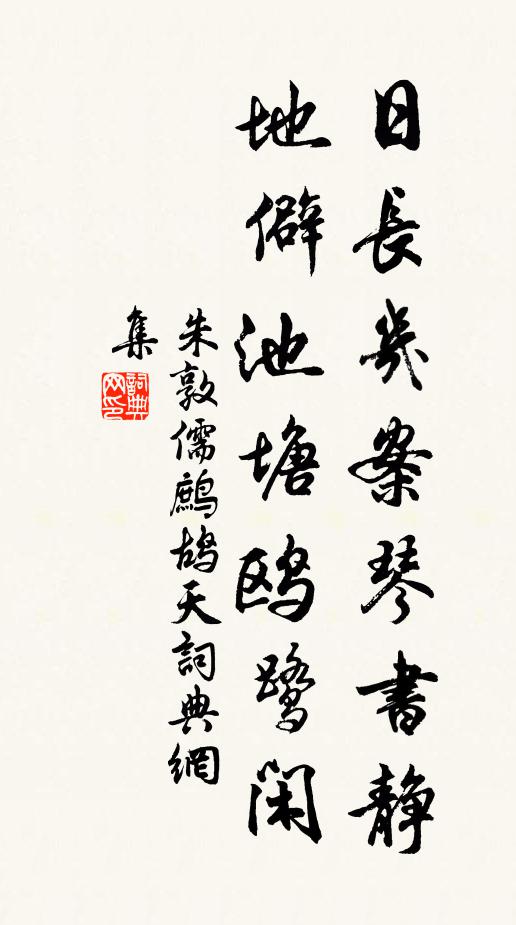 日長几案琴書静
地僻池塘鸥鹭闲
朱敦儒鷓鴣天詞典網
集
詞典网印